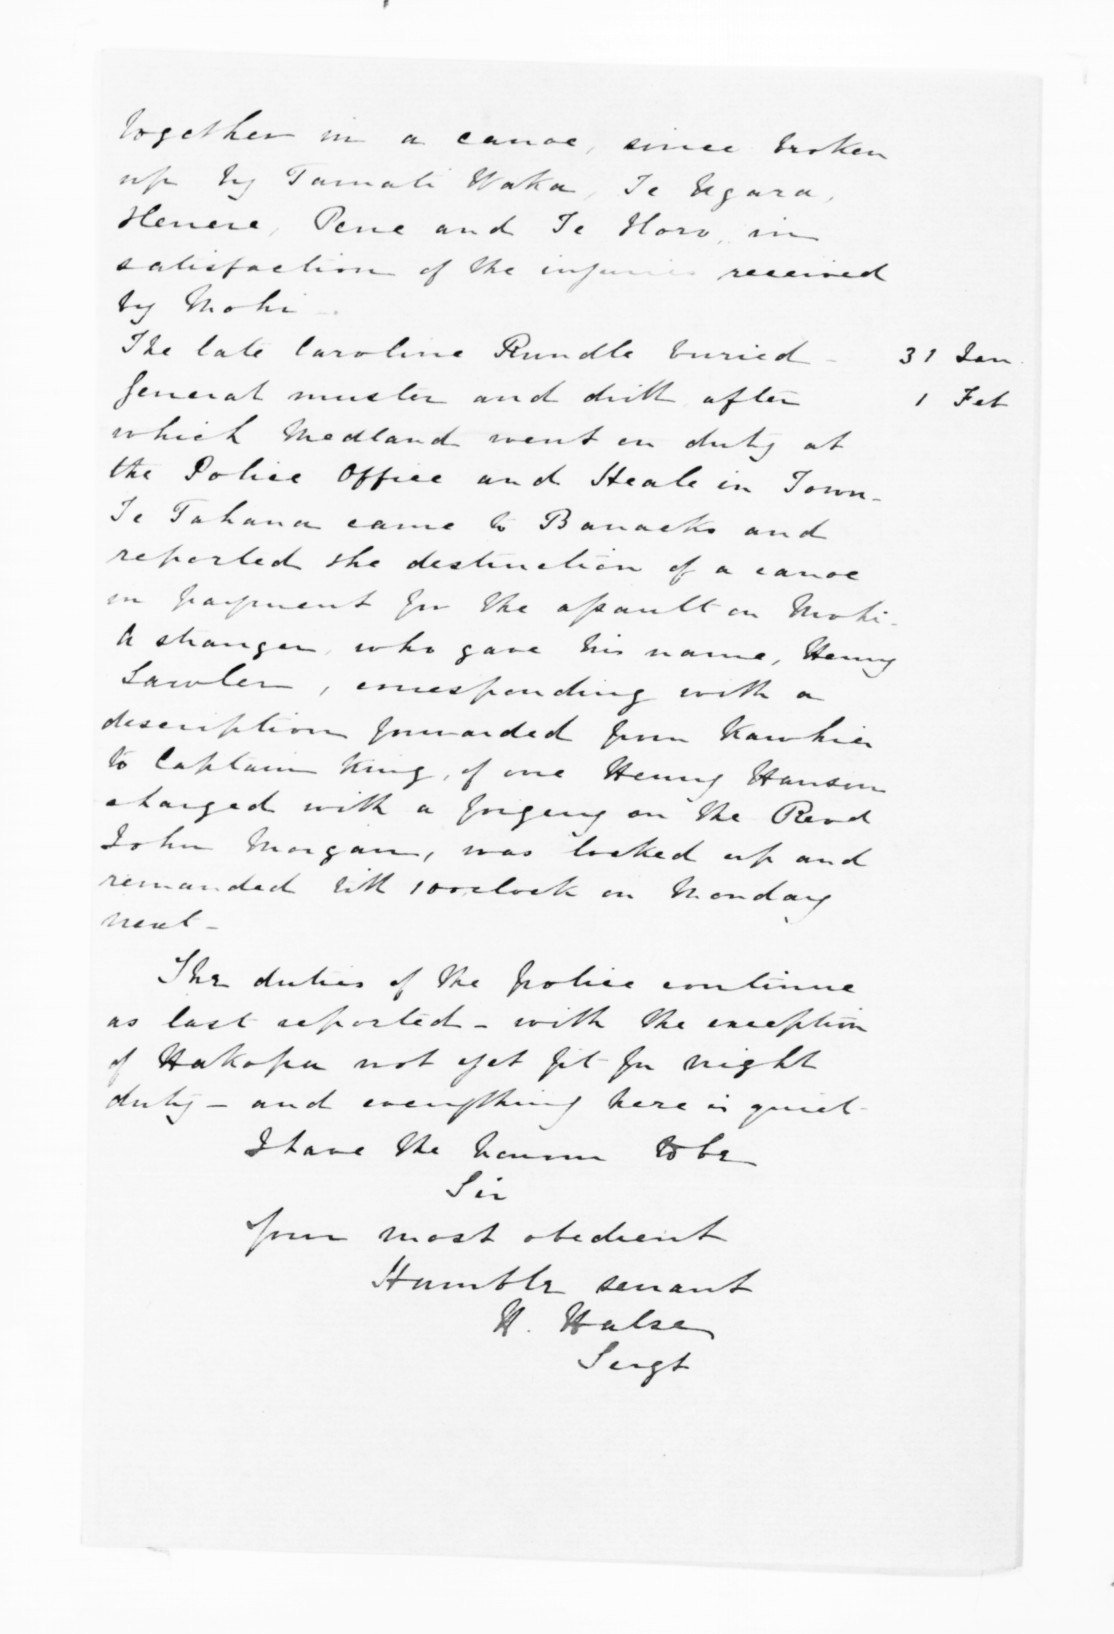 together in a canoe, since broken
up by Tamati Waka, Te Ngara,
Henere, Pene and Te Horo, in
satisfaction of the injuries received
by Mohi.
The late Caroline Rundle buried - 31 Jan
General muster and drill after 1 Feb
which Medland went on duty at
the Police Office and Heale in Town-
Te Tahana came to Barracks and
reported the destruction of a canoe
in payment for the assault on Mohi-
A stranger, who gave his name, Henry
Lawler, corresponding with a
description forwarded from Kawhia
to Captain King, of one Henry Hanson
charged with a forgery on the Revd
John Morgan, was locked up and
remanded till 10 oclock on Monday
next-
The duties of the police continue
as last reported - with the exception
of Hakopa not yet fit for night
duty - and everything here is quiet-
I have the honour to be
Sir
Your most obedient
Humble servant
H. Halse
Sergt